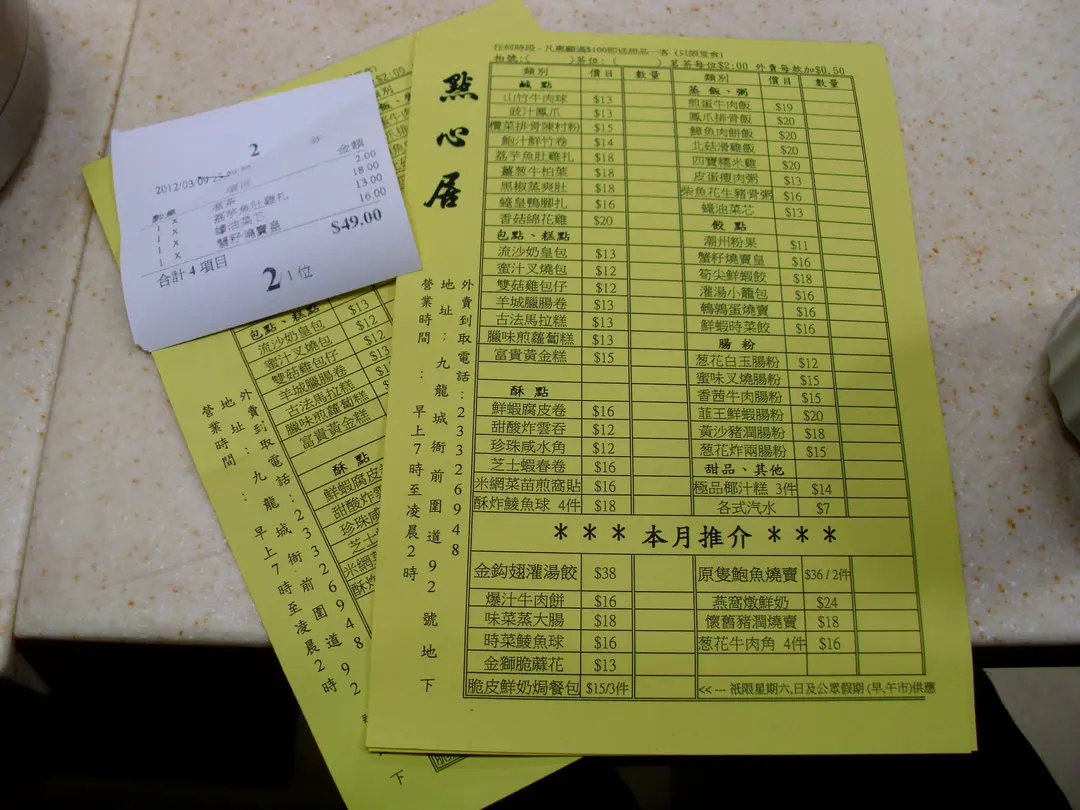 任何時段 - 凡惠顧滿$100即送甜品一客 (只限堂食)
枱號:( )茶位: ( ) 茗茶每位$2:00 外賣每款加$0.50
點心居
外賣到取電話:23326948
地址:九龍城衙前圍道92號地下
營業時間:早上7時至凌晨2時
類別 價目 數量
鹹 點
山竹牛肉球 $13
豉汁鳳爪 $13
欖菜排骨陳村粉 $15
鮑汁鮮竹卷 $14
荔芋魚肚雞扎 $18
薑葱牛柏葉 $18
黑椒蒸爽肚 $18
蠔皇鴨腳扎 $16
香菇綿花雞 $20
包點、糕點
流沙奶皇包 $13
蜜汁叉燒包 $12
雙菇雞包仔 $12
羊城臘腸卷 $13
古法馬拉糕 $13
臘味煎蘿蔔糕 $13
富貴黃金糕 $15
酥 點
鮮蝦腐皮卷 $16
甜酸炸雲吞 $12
珍珠咸水角 $12
芝士蝦春卷 $16
米網菜苗煎窩貼 $16
酥炸鯪魚球 4件 $18
類別 價目 數量
蒸 飯、粥
煎蛋牛肉飯 $19
鳳爪排骨飯 $20
鱆魚肉餅飯 $20
北菇滑雞飯 $20
四寶糯米雞 $20
皮蛋瘦肉粥 $13
柴魚花生豬骨粥 $16
蠔油菜芯 $13
餃 點
潮州粉果 $11
蟹籽燒賣皇 $16
筍尖鮮蝦餃 $18
灌湯小籠包 $16
鵪鶉蛋燒賣 $16
鮮蝦時菜餃 $16
腸 粉
葱花白玉腸粉 $12
蜜味叉燒腸粉 $15
香茜牛肉腸粉 $15
韮王鮮蝦腸粉 $20
黃沙豬潤腸粉 $18
葱花炸兩腸粉 $15
甜品、其他
極品椰汁糕 3件 $14
各式汽水 $7
＊＊＊ 本月推介 ＊＊＊
金鈎翅灌湯餃 $38
爆汁牛肉餅 $16
味菜蒸大腸 $18
時菜鯪魚球 $16
金獅脆麻花 $13
脆皮鮮奶焗餐包 $15/3件
原隻鮑魚燒賣 $36 / 2件
燕窩燉鮮奶 $24
懷舊豬潤燒賣 $18
葱花牛肉角 4件 $16
<< --- 祇限星期六,日及公眾假期 (早,午市)供應
2
2012/03/09
數量 項目 金額
1 x 茗茶 2.00
1 x 荔芋魚肚雞扎 18.00
1 x 蠔油菜芯 13.00
1 x 蟹籽燒賣皇 16.00
合計 4 項目 $49.00
2/1 位
$2:00
包點、糕點 $13
流沙奶皇包 $12
蜜汁叉燒包 $12
雙菇雞包仔 $13
羊城臘腸卷
古法馬拉糕
臘味煎蘿蔔糕
富貴黃金糕
酥 點
鮮蝦腐皮
甜酸炸雲
珍珠咸
芝士
米網菜
酥炸
外賣到取電話:23326948
地址:九龍城衙前圍道92
營業時間:早上7時至凌晨2時
下